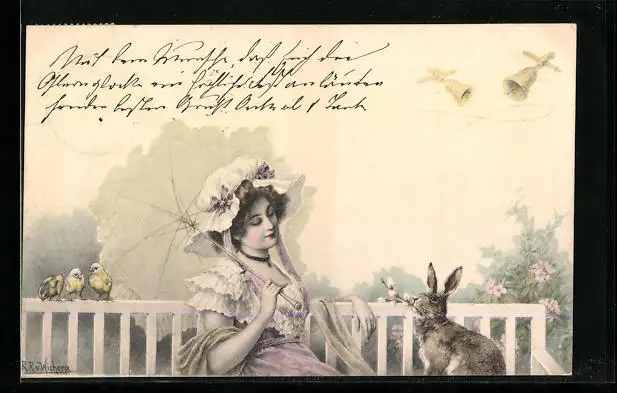 Mit dem Wunsche, daß sich die
Osternglocke ein fröhliches Fest anläuten
senden besten Gruß Onkel & Tante
R.R.v.Wichera